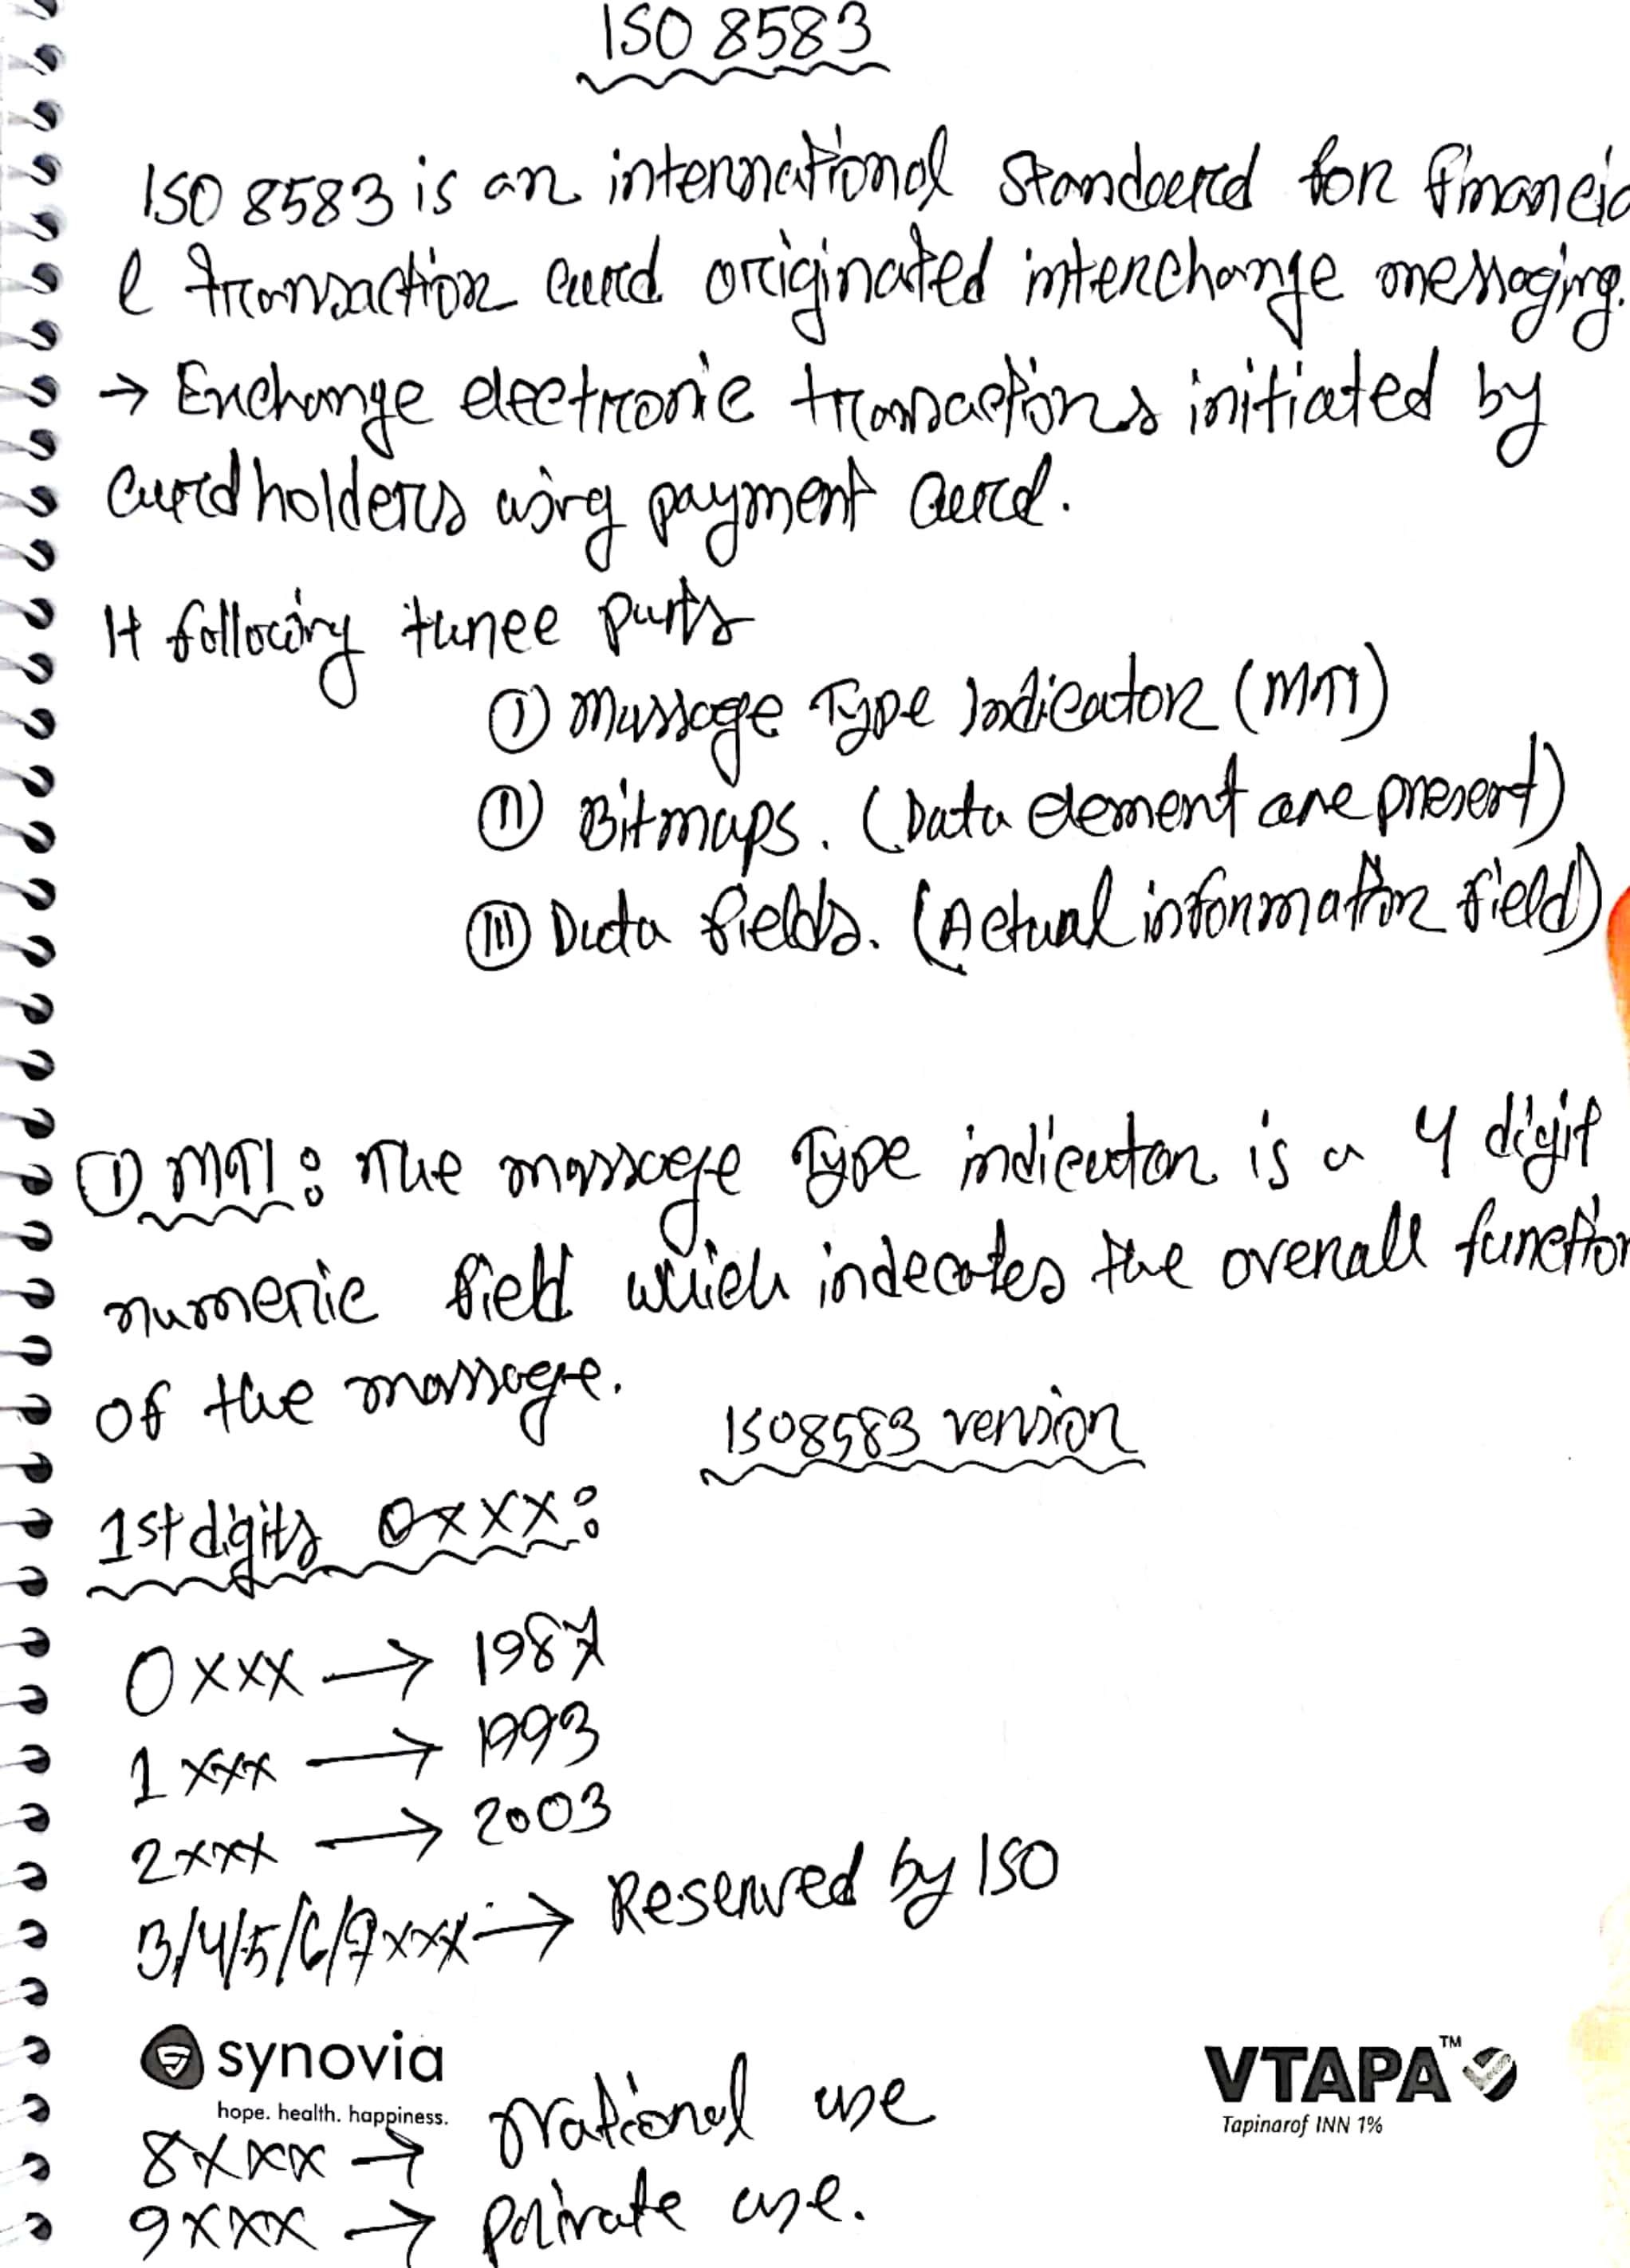 ISO 8583
ISO 8583 is an international standard for financia
l transaction card originated interchange messaging.
→ Exchange electronic transactions initiated by
cardholders using payment card.
It following three parts
(I) Massage Type Indicator (MTI)
(II) Bitmaps. (Data element are present)
(III) Data fields. (Actual information field)
(I) MTI: The massage Type indicator is a 4 digit
numeric field which indecates the overall function
of the massage.
ISO8583 version
1st digits 0xxx:
0xxx → 1987
1xxx → 1993
2xxx → 2003
3/4/5/6/7xxx → Reserved by ISO
synovia
hope. health. happiness.
VTAPA™
Tapinarof INN 1%
8xxx → National use
9xxx → private use.